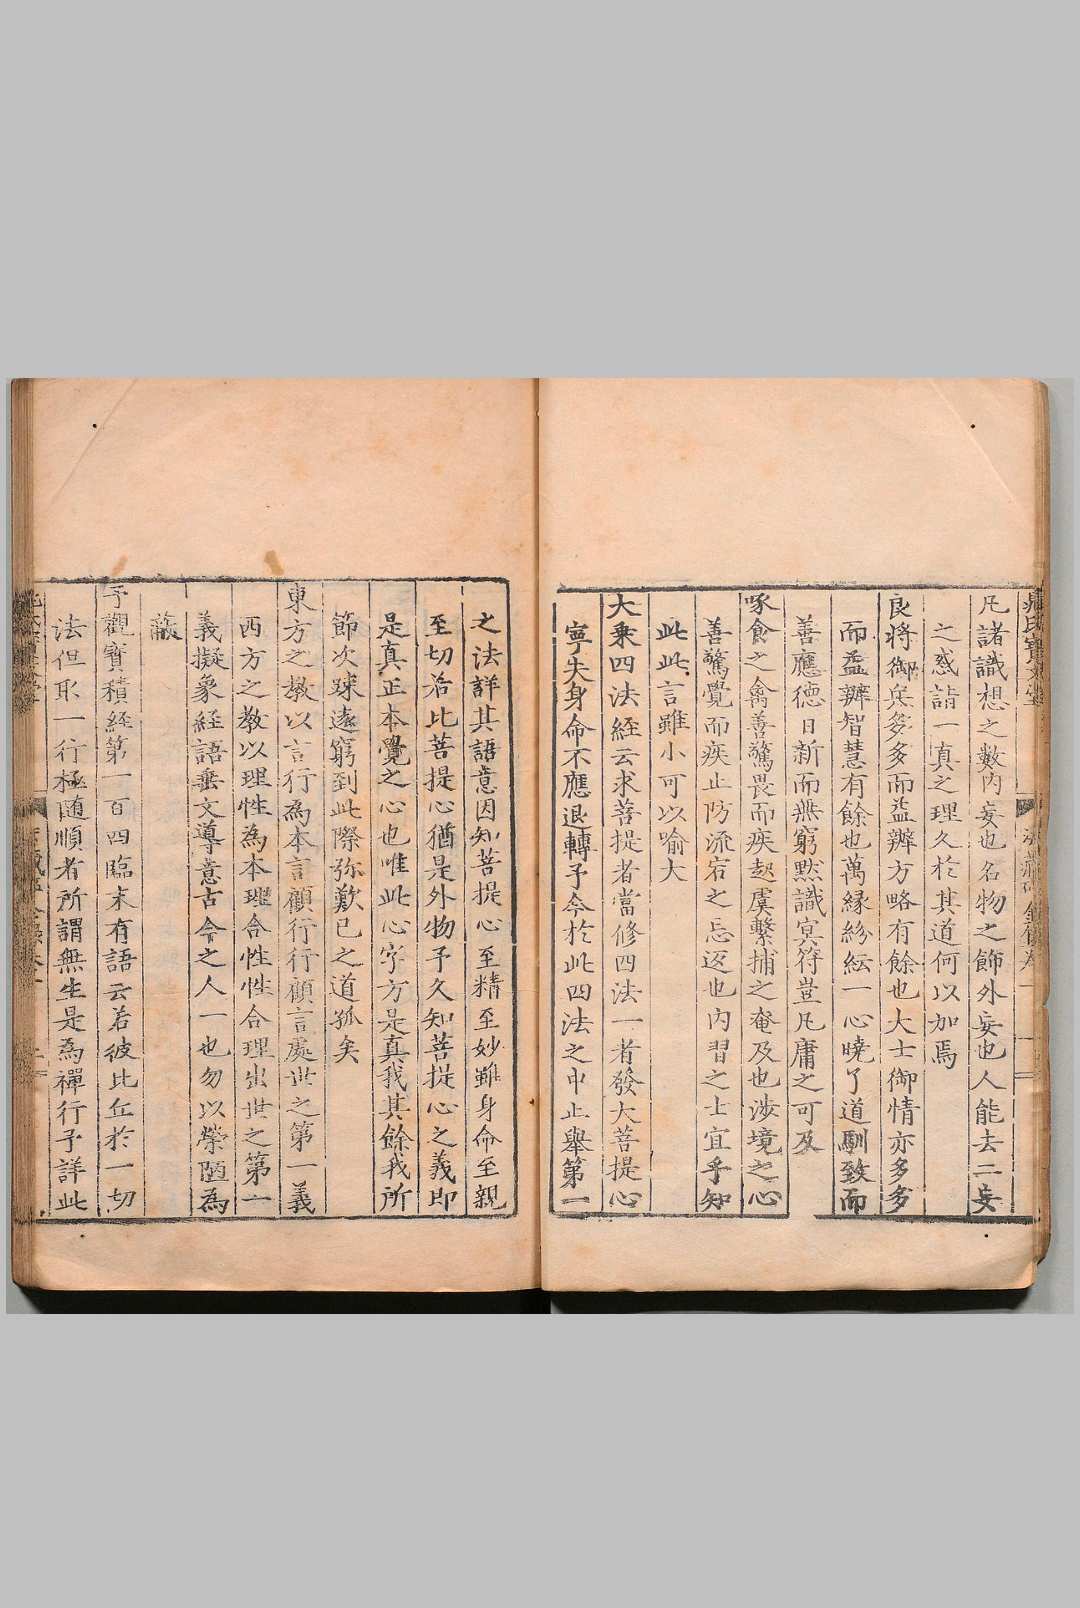 晁氏寶文堂
凡諸識想之數內妄也名物之飾外妄也人能去二妄
之惑詣一真之理久於其道何以加焉
良將御兵多多而益辦方略有餘也大士御情亦多多
而益辦智慧有餘也萬緣紛紜一心曉了道馴致而
善應德日新而無窮默識冥符豈凡庸之可及
啄食之禽善驚畏而疾起虞繫捕之奄及也涉境之心
善驚覺而疾止防流宕之忘返也內習之士宜乎知
此此言雖小可以喻大
大乘四法經云求菩提者當修四法一者發大菩提心
寧失身命不應退轉予今於此四法之中止舉第一
之法詳其語意因知菩提心至精至妙雖身命至親
至切若比菩提心猶是外物予久知菩提心之義即
是真正本覺之心也唯此心字方是真我其餘我所
節次踈遠窮到此際弥歎已之道孤矣
東方之教以言行為本言顧行行顧言處世之第一義
西方之教以理性為本理合性性合理出世之第一
義擬象經語垂文導意古今之人一也勿以榮陋為
誚
予觀寶積經第一百四臨末有語云若彼比丘於一切
法但取一行極随順者所謂無生是為禪行予詳此